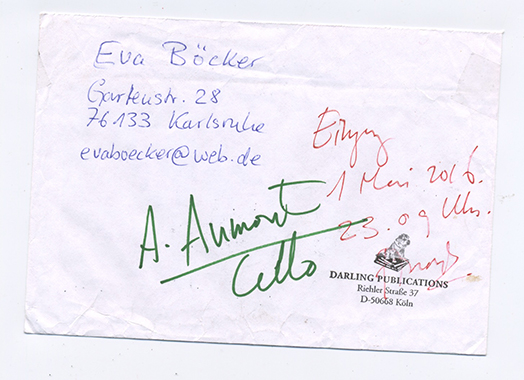 Eva Böcker
Gartenstr. 28
76133 Karlsruhe
evaboecker@web.de
1 Mai 2016.
23.09 Uhr.
A. Aumont
Cello
DARLING PUBLICATIONS
Riehler Straße 37
D-50668 Köln